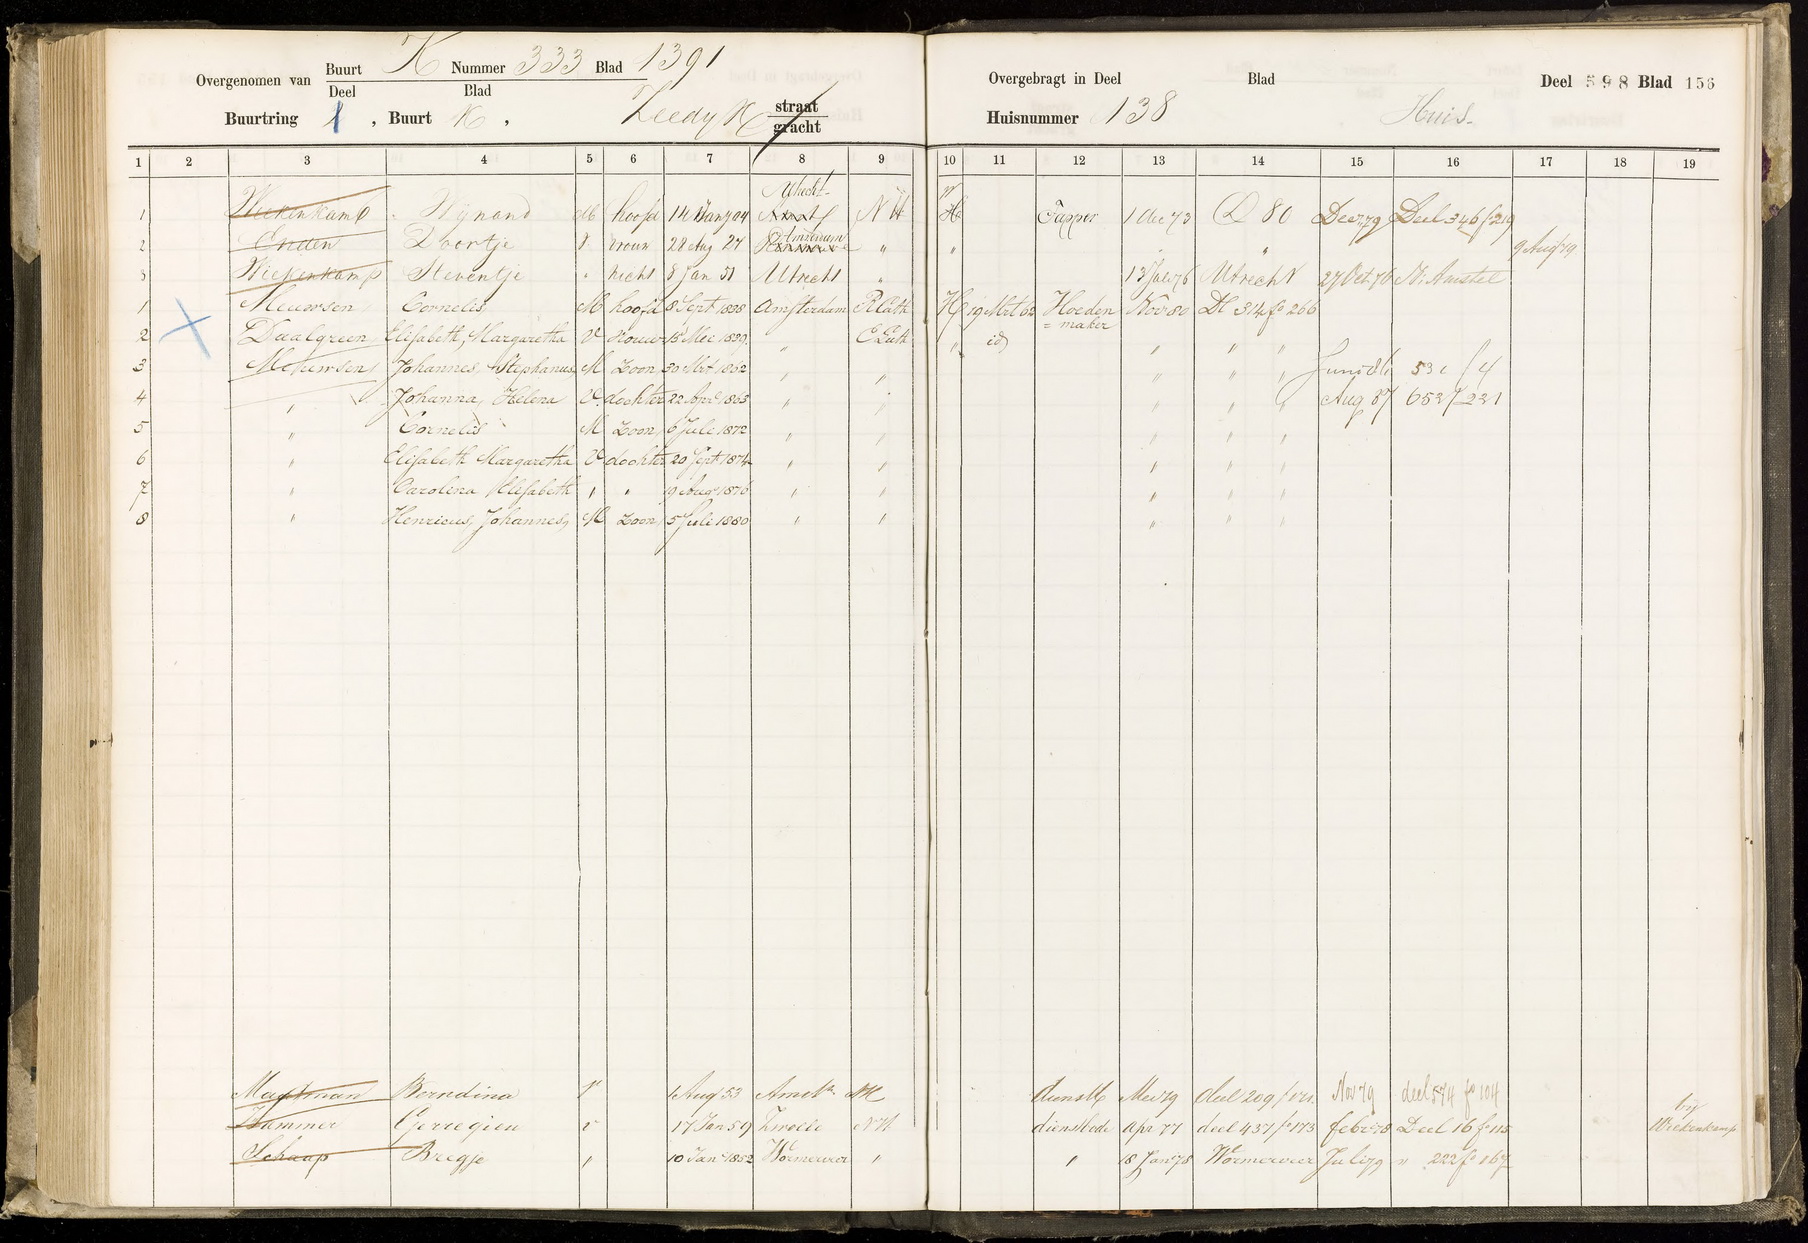 Overgenomen van Buurt K Nummer 333 Blad 1391
Deel Blad
Buurtring 1, Buurt K, Zeedyk straat
gracht
Overgebragt in Deel Blad Deel 598 Blad 156
Huisnummer 138 Huis
1 2 3 4 5 6 7 8 9 10 11 12 13 14 15 16 17 18 19
Utrecht
1 Wiekenkamp Wijnand M hoofd 14 Jany 04 NH H Tapper 1 Dec 73 D 80 Dec 79 Deel 346 f 219
2 Enden Doortje V vrouw 28 Aug 27 " " " " 9 Aug 79
3 Wiekenkamp Steventje " nicht 8 Jan 51 Utrecht " 13 Jul 76 Utrecht 27 Oct 76 N. Amstel
1 Meuwsen Cornelis M hoofd 8 Sept 1838 Amsterdam R Cath H 19 Mrt 62 Hoeden=maker Nov 80 Dl 314 fo 266
2 Daalgreen Elisabeth, Margaretha V Vrouw 15 Dec 1839 " E Luth " id " " "
3 Meuwsen Johannes, Stephanus M Zoon 30 Mrt 1862 " " " " " Juni 86 531 / 4
4 " Johanna, Helena V dochter 22 Apr 1863 " " " " " Aug 87 652 / 221
5 " Cornelis M Zoon 6 Juli 1872 " " " " "
6 " Elisabeth Margaretha V dochter 20 Sept 1874 " " " " "
7 " Carolina Elisabeth " " 19 Aug 1876 " " " " "
8 " Henricus, Johannes M Zoon 5 Juli 1880 " " " " "
Berndina V 1 Aug 53 Amst NH dienstb Mei 79 deel 209 / Nov 79 deel 574 fo 104
Hammer Gerregien V 17 Jan 59 Zwolle NH dienstbode Apr 77 deel 437 fo 173 febr 78 Deel 16 fo 115 bij Wiekenkamp
Schaap Bregje " 10 Jan 1852 Wormerveer " " 18 Jan 78 Wormerveer Juli 79 " 222 fo 167